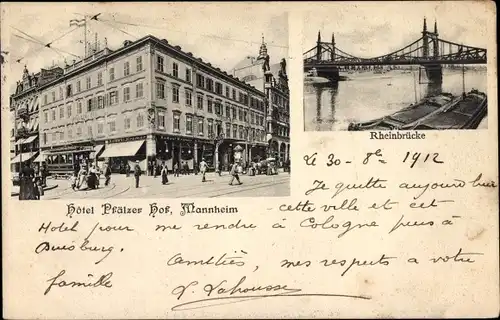 Rheinbrücke
Le 30-8te 1912
Je quitte aujourd'hui
Hôtel Pfälzer Hof, Mannheim
cette ville et cet
Hotel pour me rendre à Cologne puis à
Duisburg. Amitiés, mes respects a votre
famille
L. Lahousse